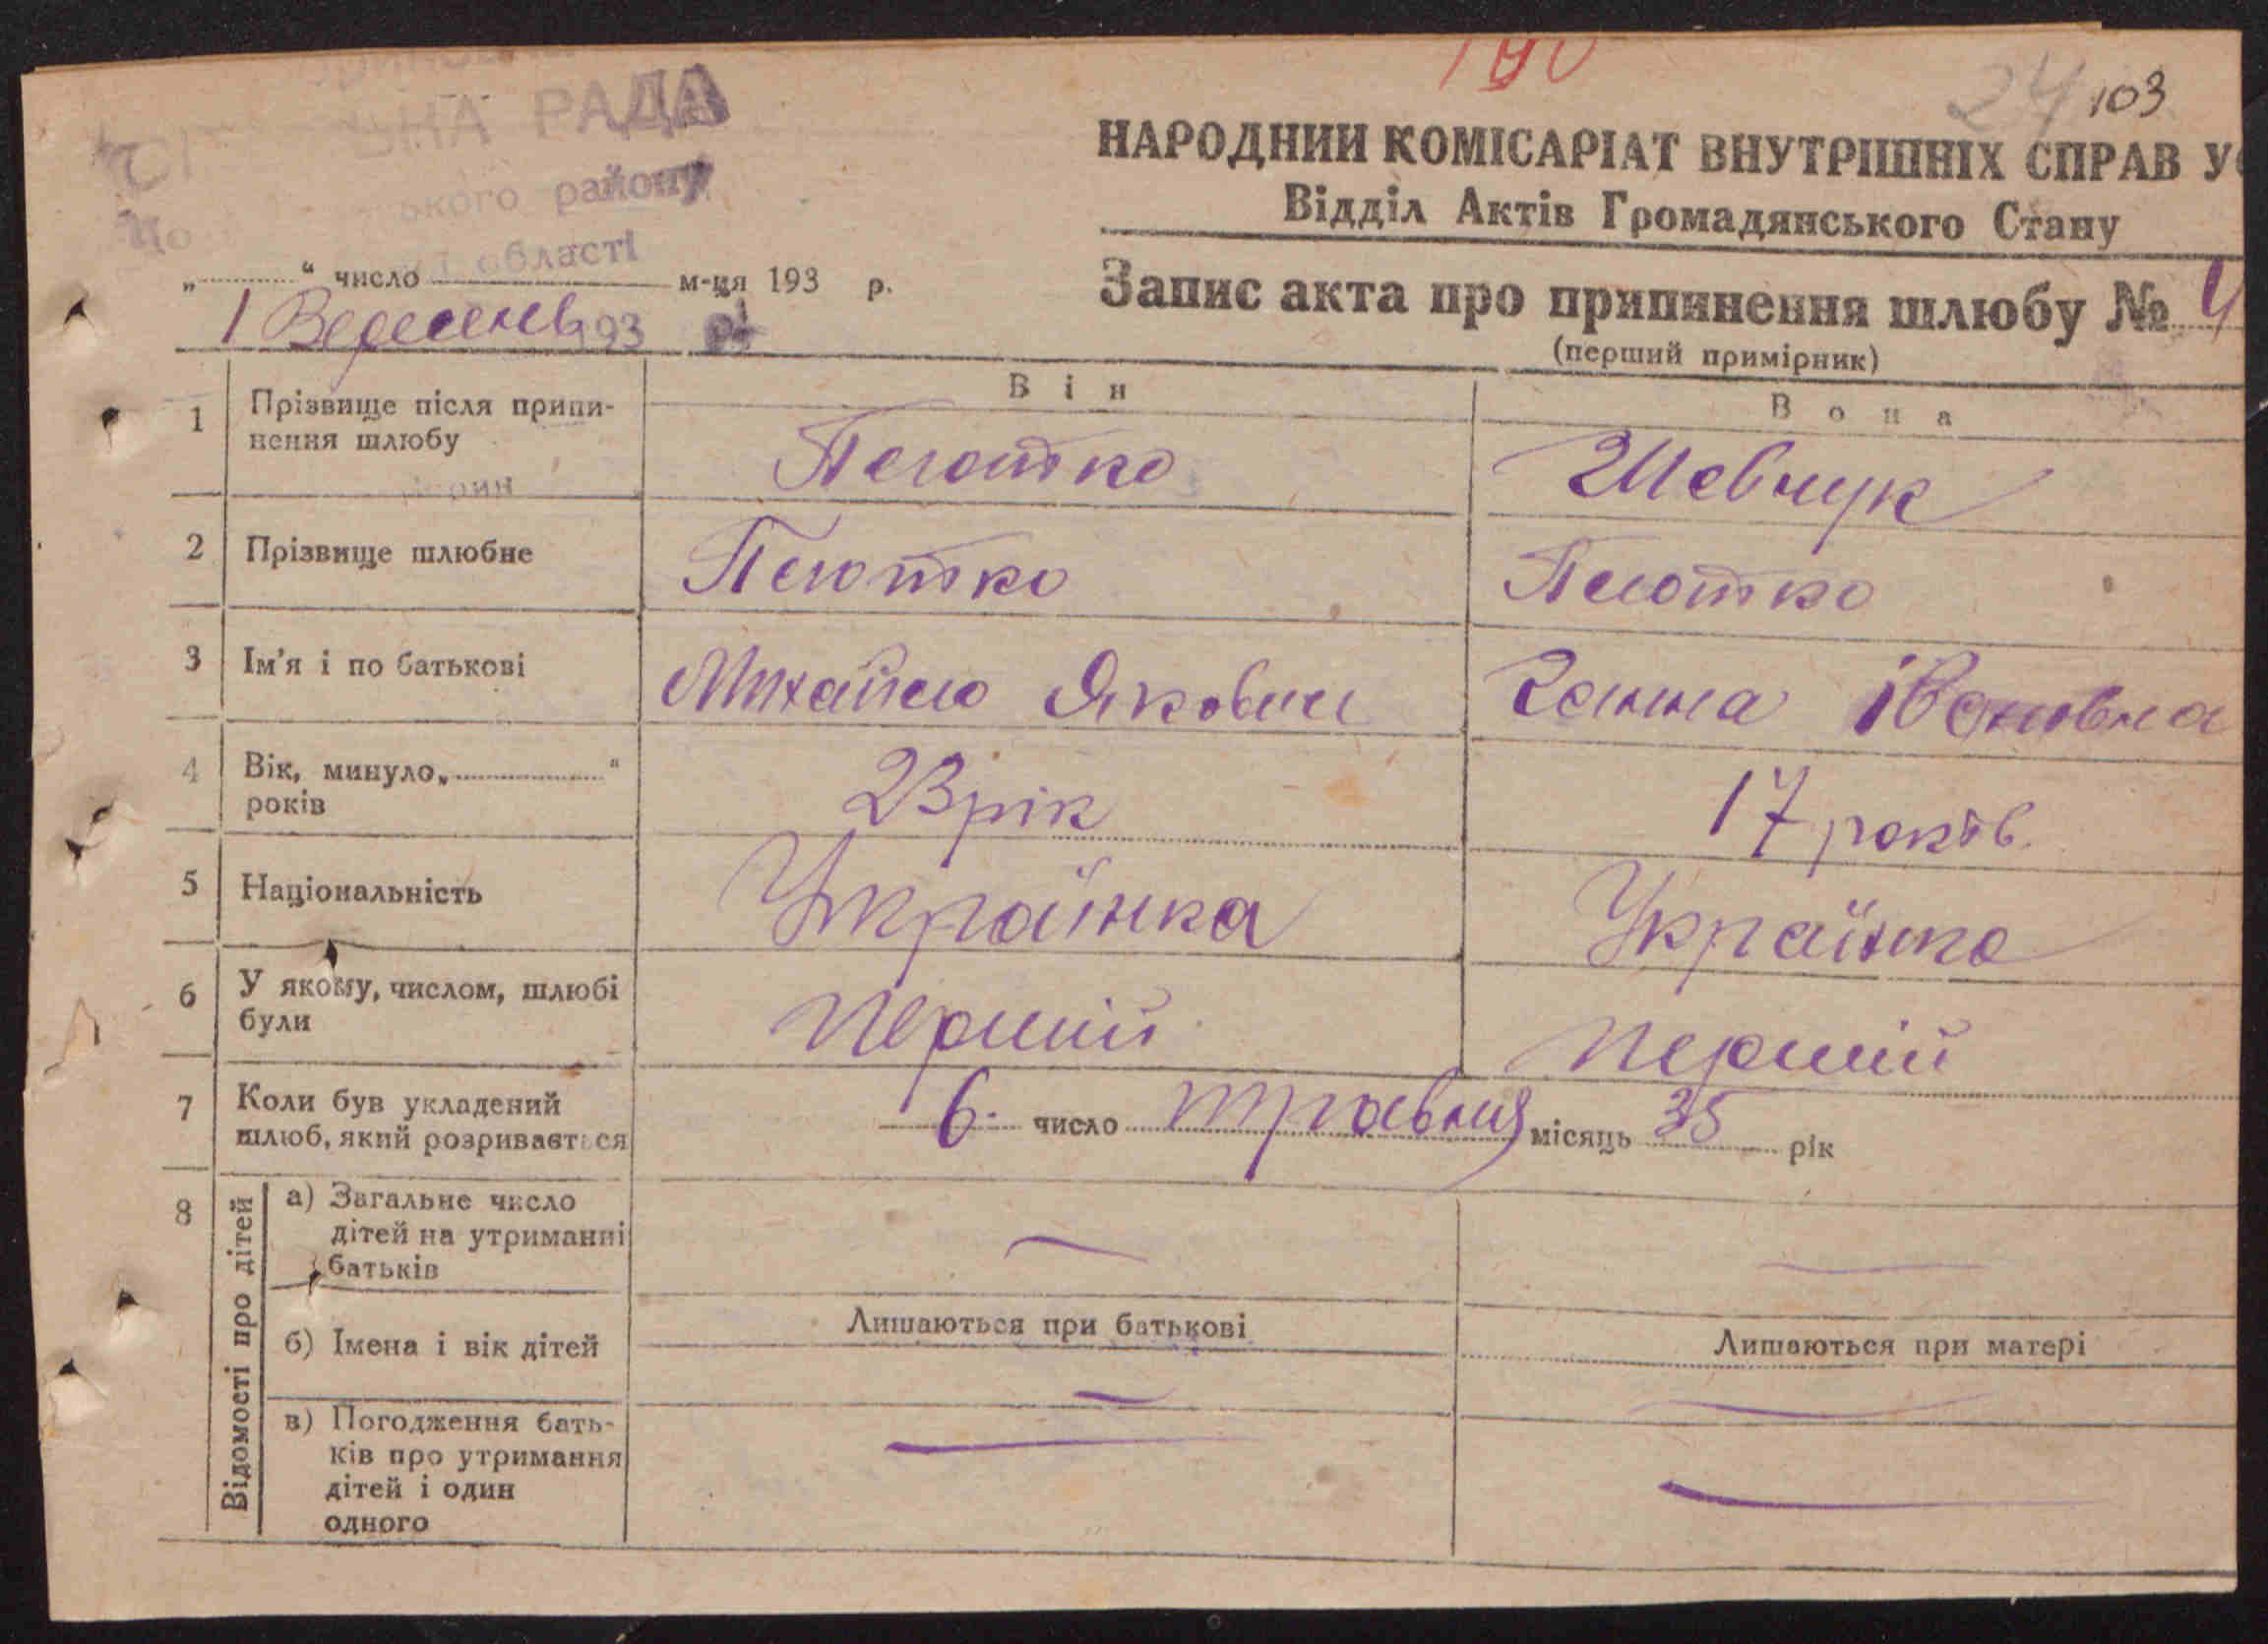 103
24
ЬНА РАДА
ького району
області
НАРОДНИЙ КОМІСАРІАТ ВНУТРІШНІХ СПРАВ У
Відділ Актів Громадянського Стану
„ “ число м-ця 193 р.
1 Вересень 193
Запис акта про припинення шлюбу № 4
(перший примірник)
Він Вона
1 Прізвище після припи-
нення шлюбу
Шевчук
2 Прізвище шлюбне
3 Ім'я і по батькові
Михайло Якович Ганна Івановна
4 Вік, минуло „ “
років
23 рік 17 років
5 Національність
Українка Українка
6 У якому, числом, шлюбі
були
Першій Першій
7 Коли був укладений
шлюб, який розривається
6 число травня місяць 35 рік
8 Відомості про дітей
а) Загальне число
дітей на утриманні
батьків
б) Імена і вік дітей
Лишаються при батькові Лишаються при матері
в) Погодження бать-
ків про утримання
дітей і один
одного